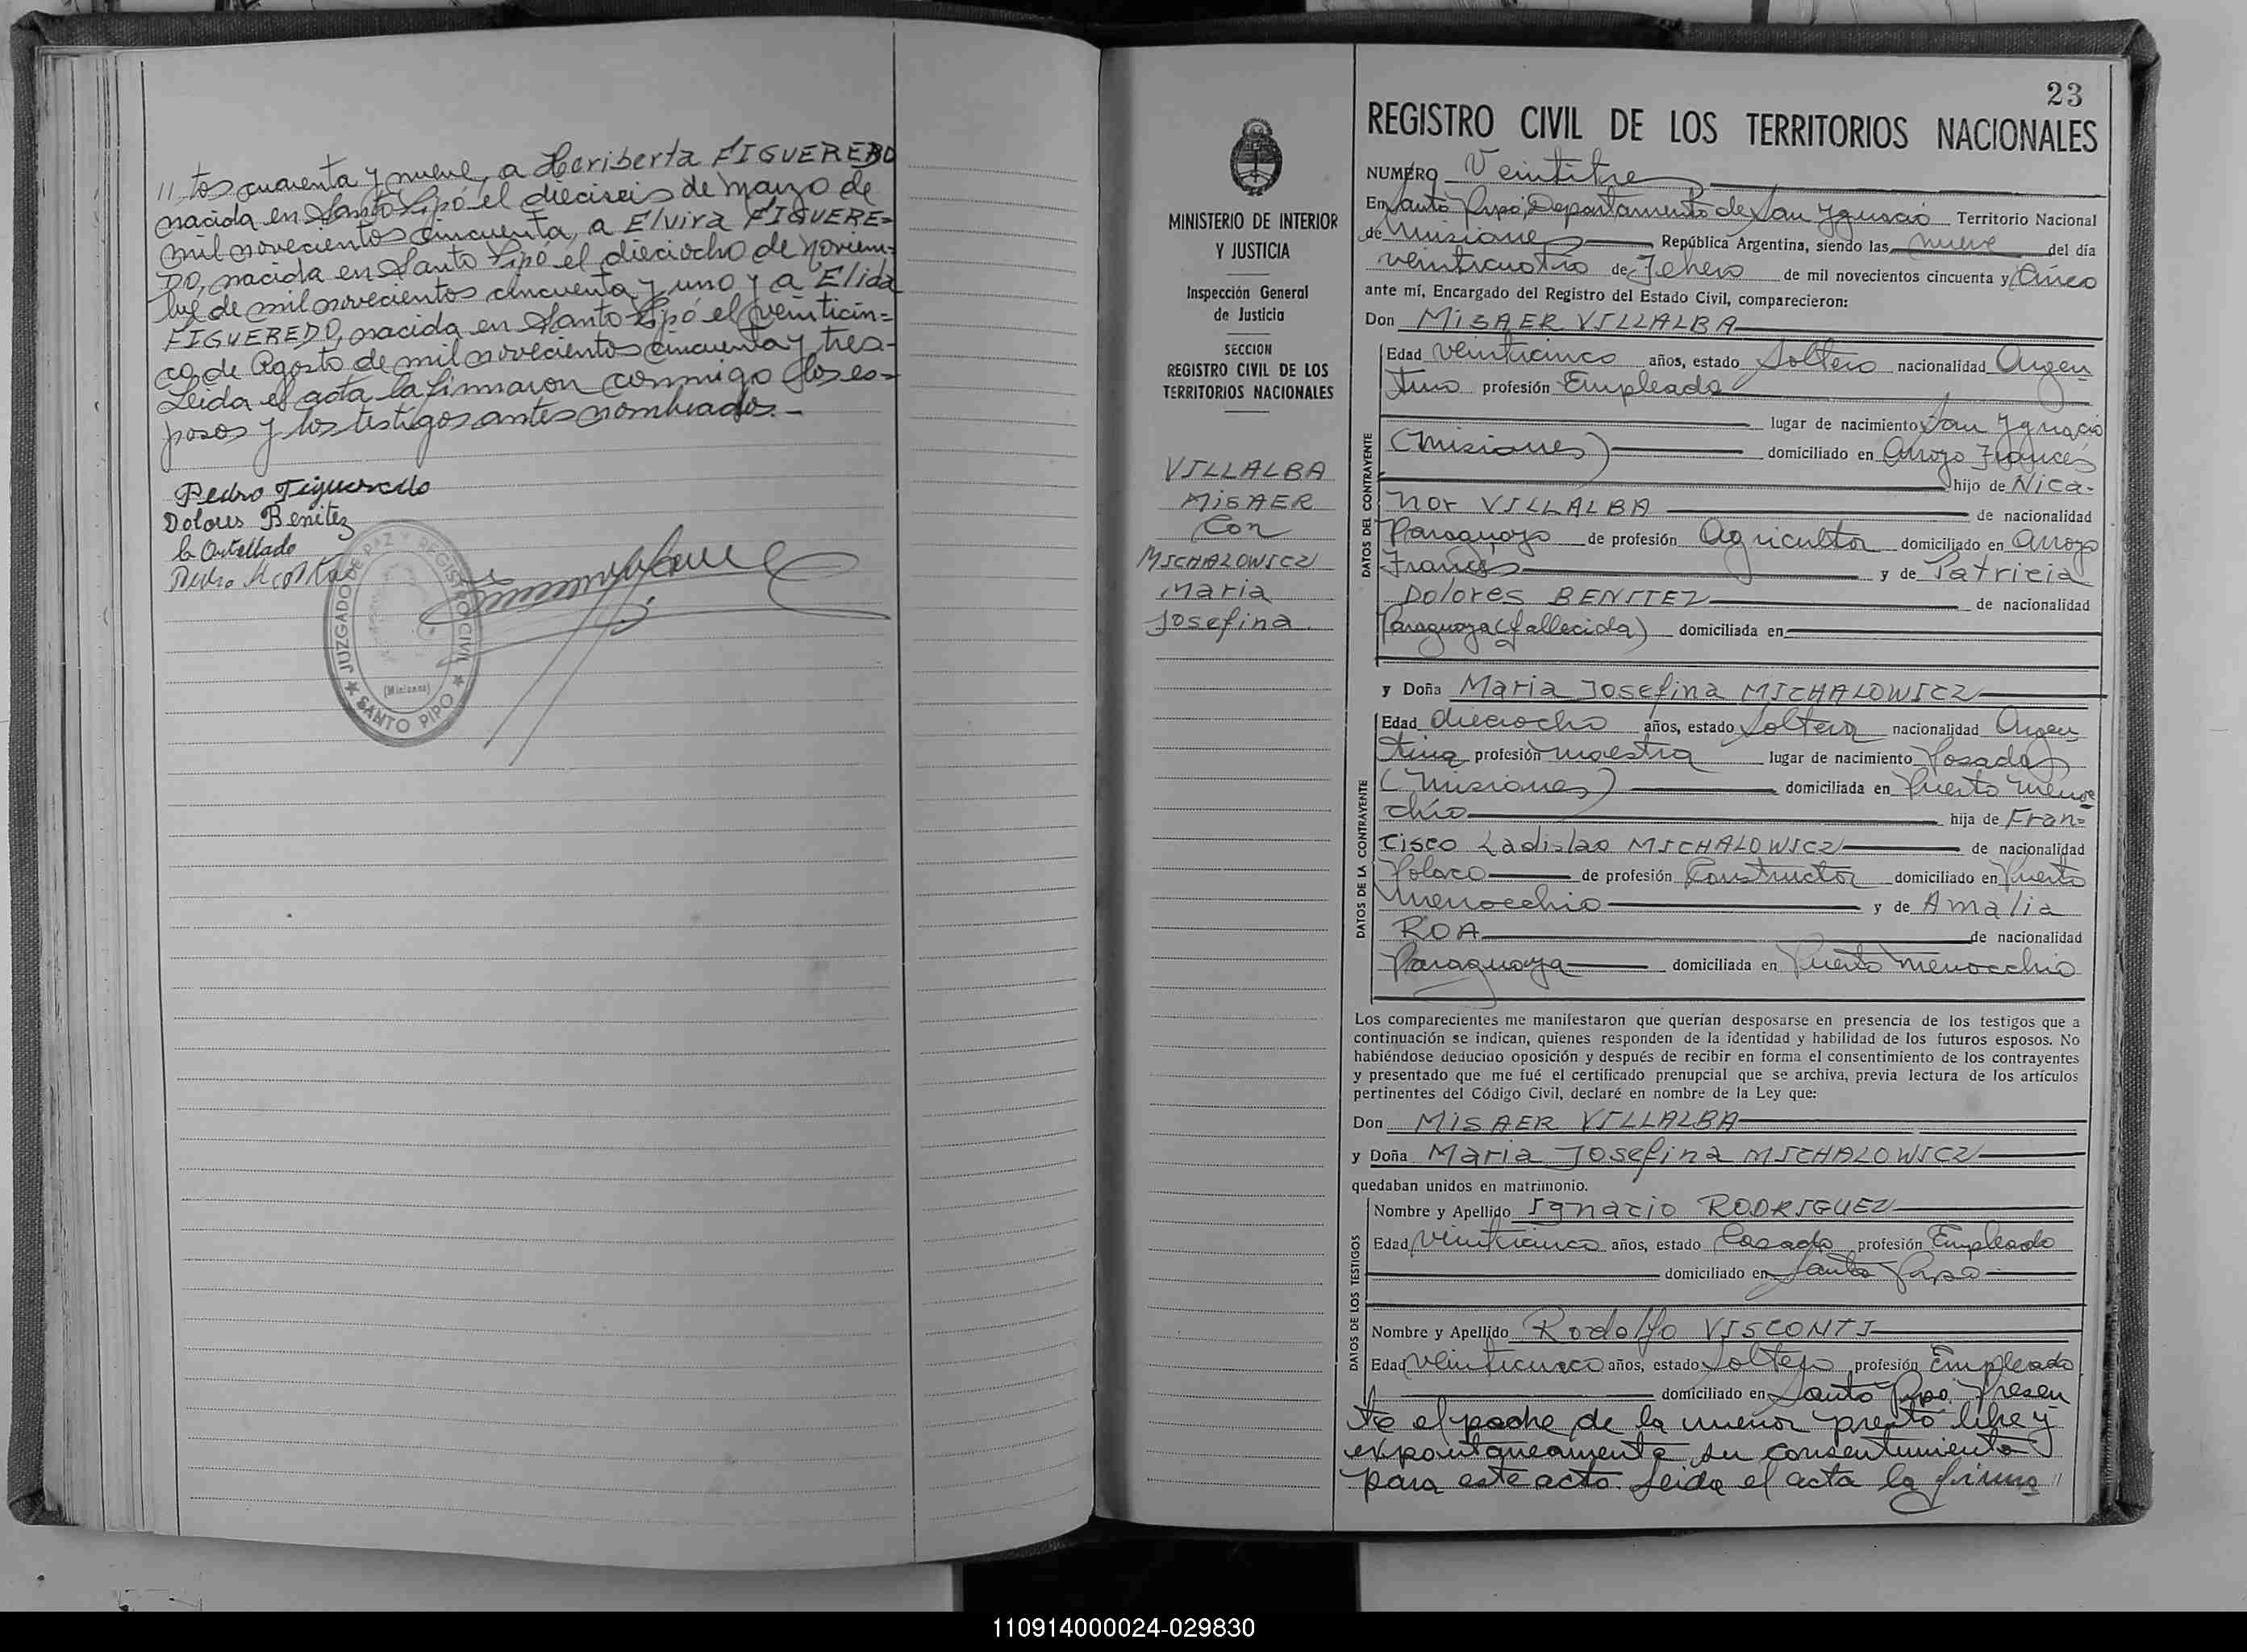 // tos cuarenta y nueve, a Heriberta FIGUEREDO
nacida en Santo Pipó el dieciseis de marzo de
mil novecientos cincuenta, a Elvira FIGUERE=
DO, nacida en Santo Pipó el dieciocho de noviem=
bre de mil novecientos cincuenta y uno y a Elida
FIGUEREDO, nacida en Santo Pipó el veinticin=
co de Agosto de mil novecientos cincuenta y tres.-
Leida el acta la firmaron conmigo los es=
posos y los testigos antes nombrados.-
Pedro Figueredo
Dolores Benitez
Pedro
JUZGADO DE PAZ Y REGISTRO CIVIL
(Misiones)
★ SANTO PIPO ★
23
REGISTRO CIVIL DE LOS TERRITORIOS NACIONALES
MINISTERIO DE INTERIOR
Y JUSTICIA
Inspección General
de Justicia
SECCION
REGISTRO CIVIL DE LOS
TERRITORIOS NACIONALES
VILLALBA
MiSAER
Con
MICHALOWICZ
Maria
Josefina.
NUMERO Veintitres
En Santo Pipó, Departamento de San Ygnacio Territorio Nacional
de Misiones República Argentina, siendo las nueve del día
veinticuatro de Enero de mil novecientos cincuenta y Cinco
ante mí, Encargado del Registro del Estado Civil, comparecieron:
Don MiSAER VILLALBA
DATOS DEL CONTRAYENTE
Edad veinticinco años, estado Soltero nacionalidad Argen
tino profesión Empleado
lugar de nacimiento San Ygnacio
(Misiones) domiciliado en Arroyo Francés
hijo de Nica-
nor VILLALBA de nacionalidad
Paraguayo de profesión Agricultor domiciliado en Arroyo
Francés y de Patricia
Dolores BENITEZ de nacionalidad
Paraguaya (fallecida) domiciliada en
y Doña Maria Josefina MICHALOWICZ
DATOS DE LA CONTRAYENTE
Edad dieciocho años, estado Soltera nacionalidad Argen
tina profesión maestra lugar de nacimiento Posadas
(Misiones) domiciliada en Puerto Meno
chio hija de Fran=
cisco Ladislao MICHALOWICZ de nacionalidad
Polaco de profesión Constructor domiciliado en Puerto
Menocchio y de Amalia
ROA de nacionalidad
Paraguaya domiciliada en Puerto Menocchio
Los comparecientes me manifestaron que querían desposarse en presencia de los testigos que a
continuación se indican, quienes responden de la identidad y habilidad de los futuros esposos. No
habiéndose deducido oposición y después de recibir en forma el consentimiento de los contrayentes
y presentado que me fué el certificado prenupcial que se archiva, previa lectura de los artículos
pertinentes del Código Civil, declaré en nombre de la Ley que:
Don MiSAER VILLALBA
y Doña Maria Josefina MICHALOWICZ
quedaban unidos en matrimonio.
DATOS DE LOS TESTIGOS
Nombre y Apellido Ignacio RODRIGUEZ
Edad Veinticinco años, estado Casado profesión Empleado
domiciliado en Santo Pipó
Nombre y Apellido Rodolfo VISCONTI
Edad Veinticinco años, estado Soltero profesión Empleado
domiciliado en Santo Pipó. Presen
te el padre de la menor prestó libre y
expontaneamente su consentimiento
para este acto. Leida el acta la firma //
110914000024-029830